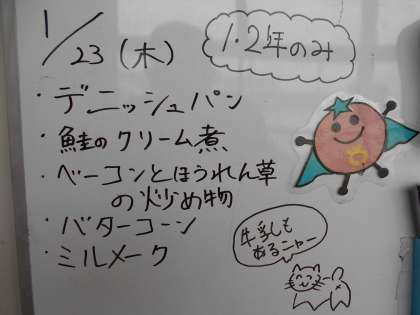 1/23(木)
1・2年のみ
・デニッシュパン
・鮭のクリーム煮
・ベーコンとほうれん草
の炒め物
・バターコーン
・ミルメーク
牛乳しも
あるニャー